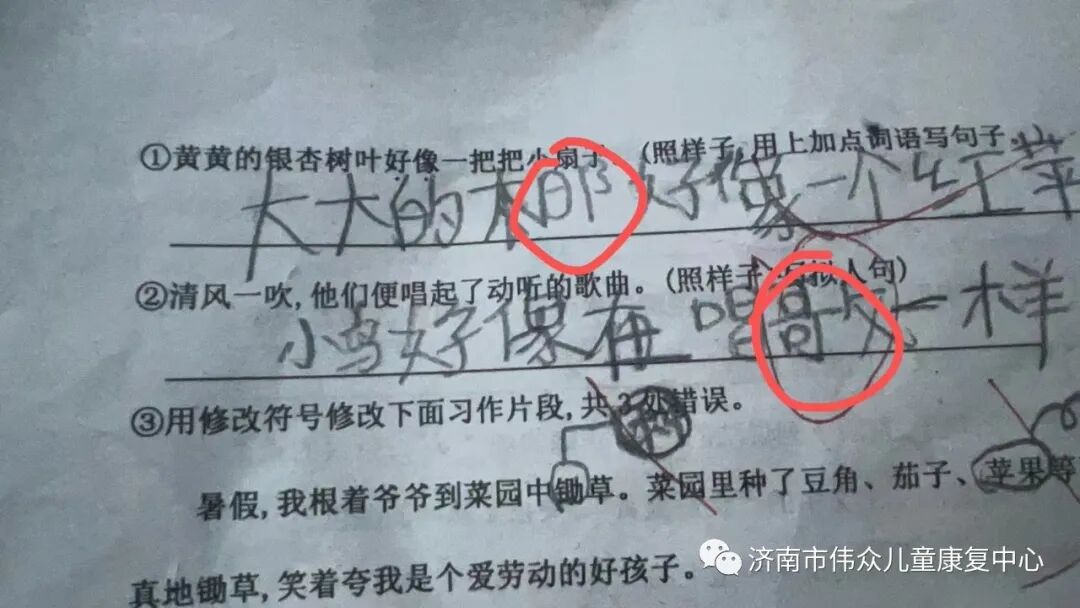 ①黄黄的银杏树叶好像一把把小扇子。(照样子,用上加点词语写句子。)
大大的木郎好像一个红苹
②清风一吹,他们便唱起了动听的歌曲。(照样子,写拟人句)
小鸟好像在唱哥欠一样
③用修改符号修改下面习作片段,共3处错误。
暑假,我根着爷爷到菜园中锄草。菜园里种了豆角、茄子、苹果等
真地锄草,笑着夸我是个爱劳动的好孩子。
济南市伟众儿童康复中心